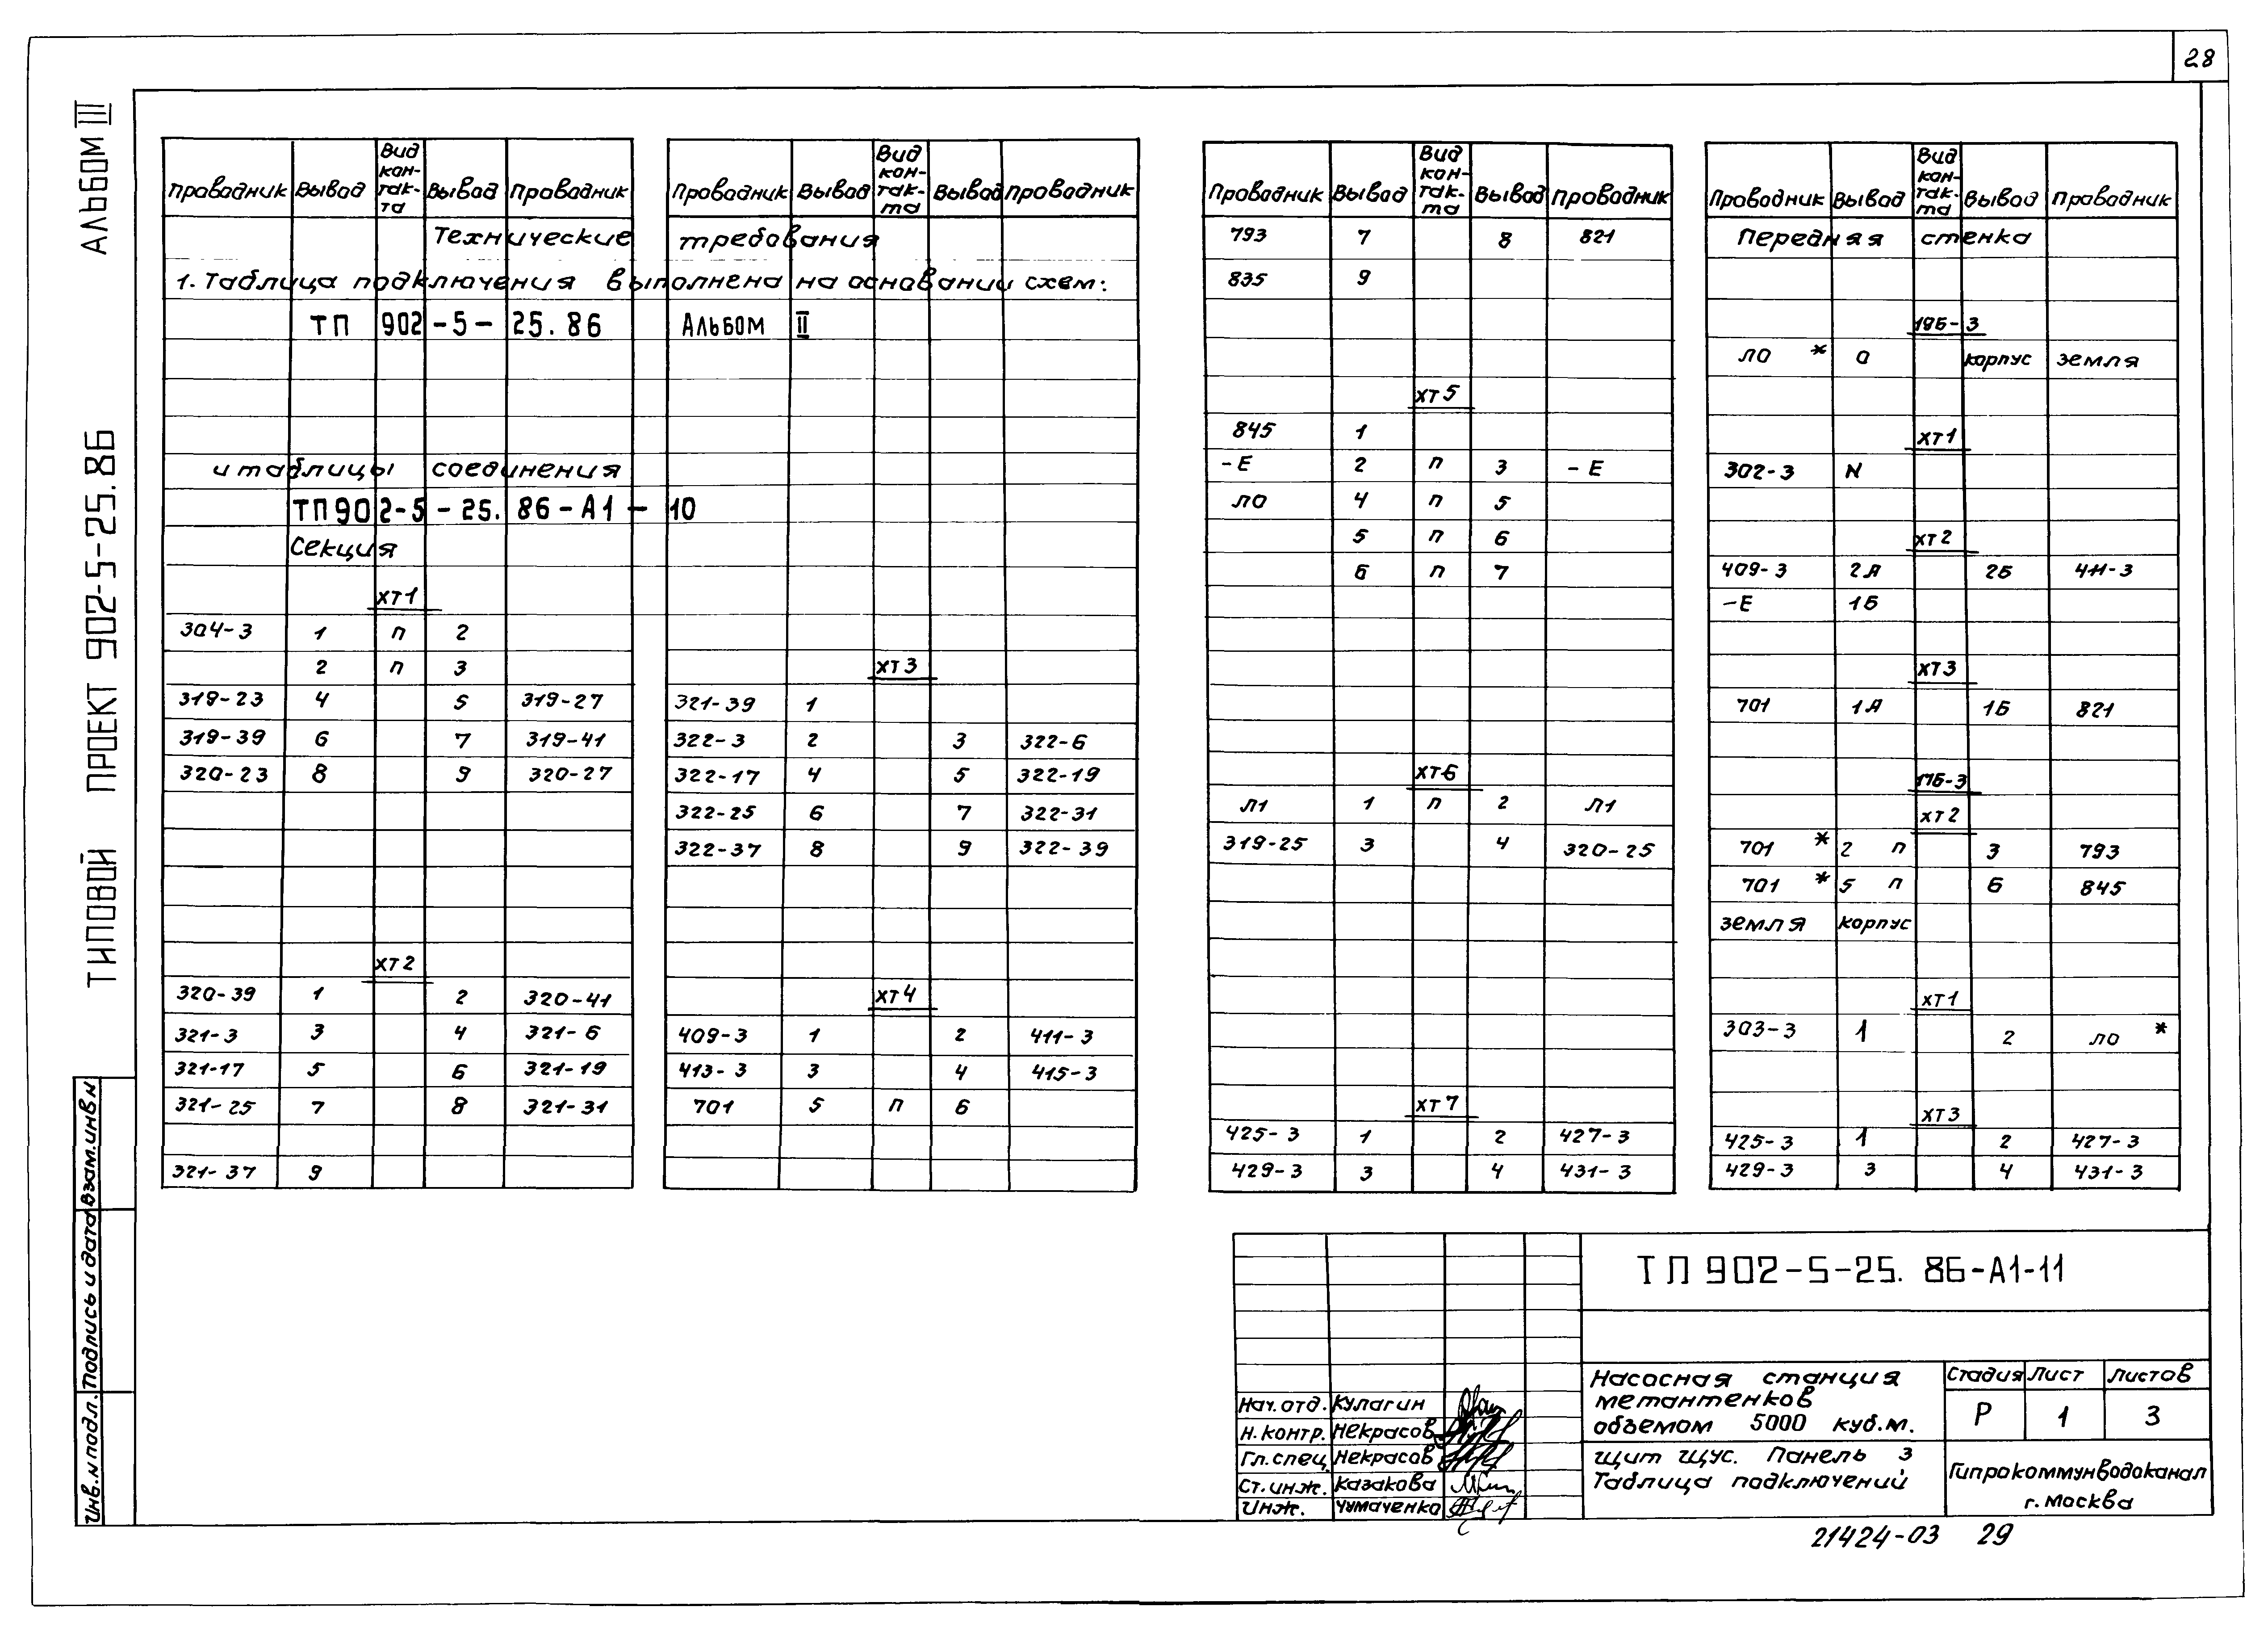 28
Альбом III
Типовой проект 902-5-25.86
Инв.N подл. Подпись и дата Взам.инв N
Проводник Вывод Вид кон-так-та Вывод Проводник
Проводник Вывод Вид кон-так-та Вывод Проводник
Технические требования
1. Таблица подключения выполнена на основании схем:
ТП 902-5-25.86 Альбом II
и таблицы соединения
ТП902-5-25.86-А1-10
Секция
ХТ1
304-3 1 п 2
2 п 3
319-23 4 5 319-27
319-39 6 7 319-41
320-23 8 9 320-27
ХТ2
320-39 1 2 320-41
321-3 3 4 321-6
321-17 5 6 321-19
321-25 7 8 321-31
321-37 9
ХТ3
321-39 1
322-3 2 3 322-6
322-17 4 5 322-19
322-25 6 7 322-31
322-37 8 9 322-39
ХТ4
409-3 1 2 411-3
413-3 3 4 415-3
701 5 п 6
Проводник Вывод Вид кон-так-та Вывод Проводник
793 7 8 821
835 9
ХТ5
845 1
-Е 2 п 3 -Е
ЛО 4 п 5
5 п 6
6 п 7
ХТ6
Л1 1 п 2 Л1
319-25 3 4 320-25
ХТ7
425-3 1 2 427-3
429-3 3 4 431-3
Проводник Вывод Вид кон-так-та Вывод Проводник
Передняя стенка
19Б-3
ЛО * 0 корпус земля
ХТ1
302-3 N
ХТ2
409-3 2А 2Б 411-3
-Е 1Б
ХТ3
701 1А 1Б 821
17Б-3
ХТ2
701 * 2 п 3 793
701 * 5 п 6 845
земля корпус
ХТ1
303-3 1 2 ЛО *
ХТ3
425-3 1 2 427-3
429-3 3 4 431-3
ТП 902-5-25.86-А1-11
Нач.отд. Кулагин
Н.контр. Некрасов
Гл.спец. Некрасов
Ст.инж. Казакова
Инж. Чумаченко
Насосная станция
метантенков
объемом 5000 куб.м.
Стадия Лист Листов
Р 1 3
Щит ЩУС. Панель 3
Таблица подключений
Гипрокоммунводоканал
г. Москва
21424-03 29